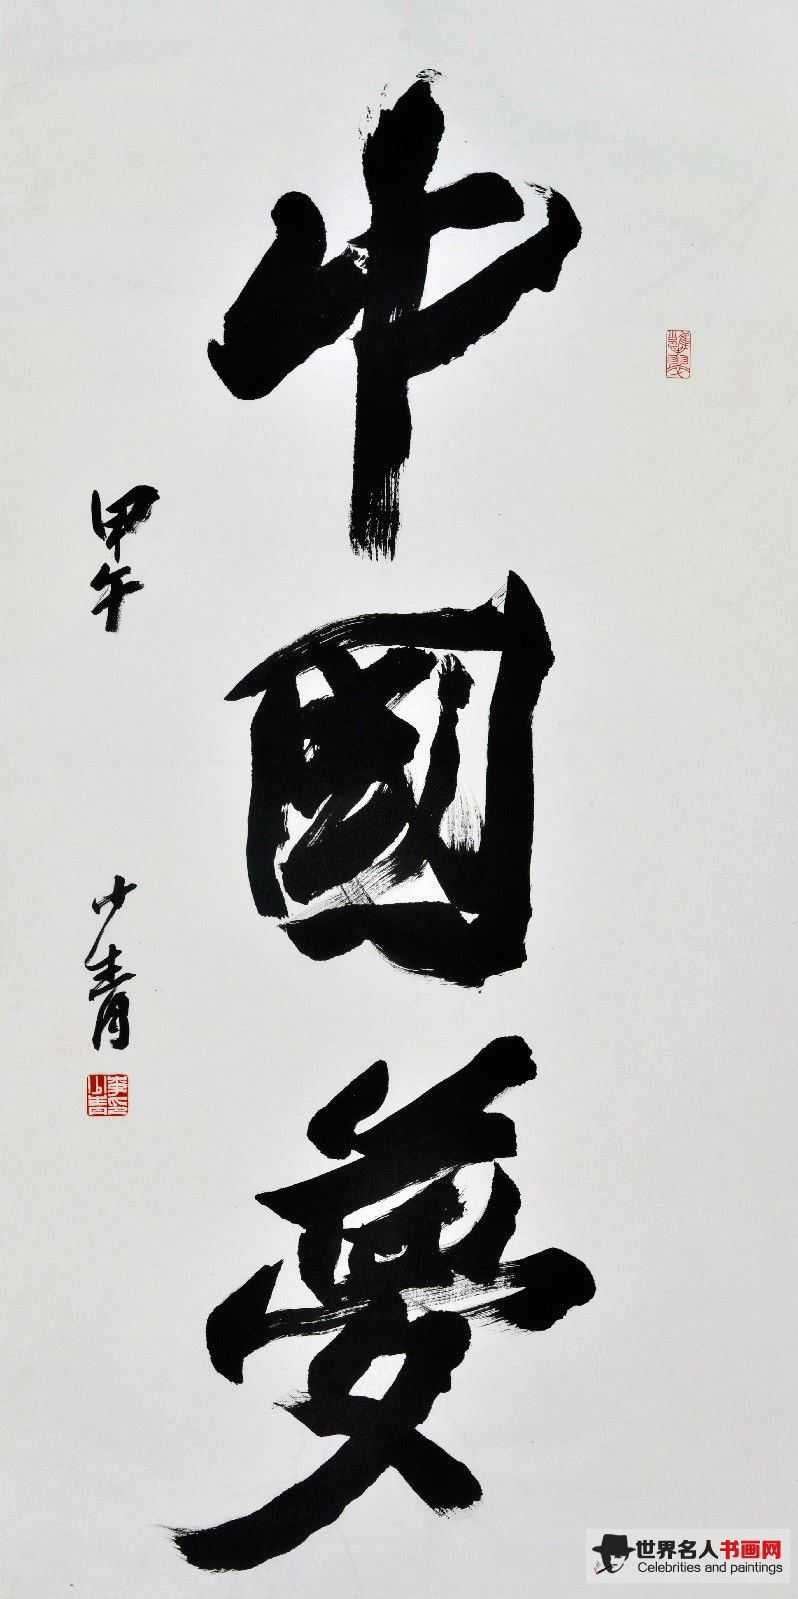 中國夢
甲午
少青
世界名人书画网
Celebrities and paintings